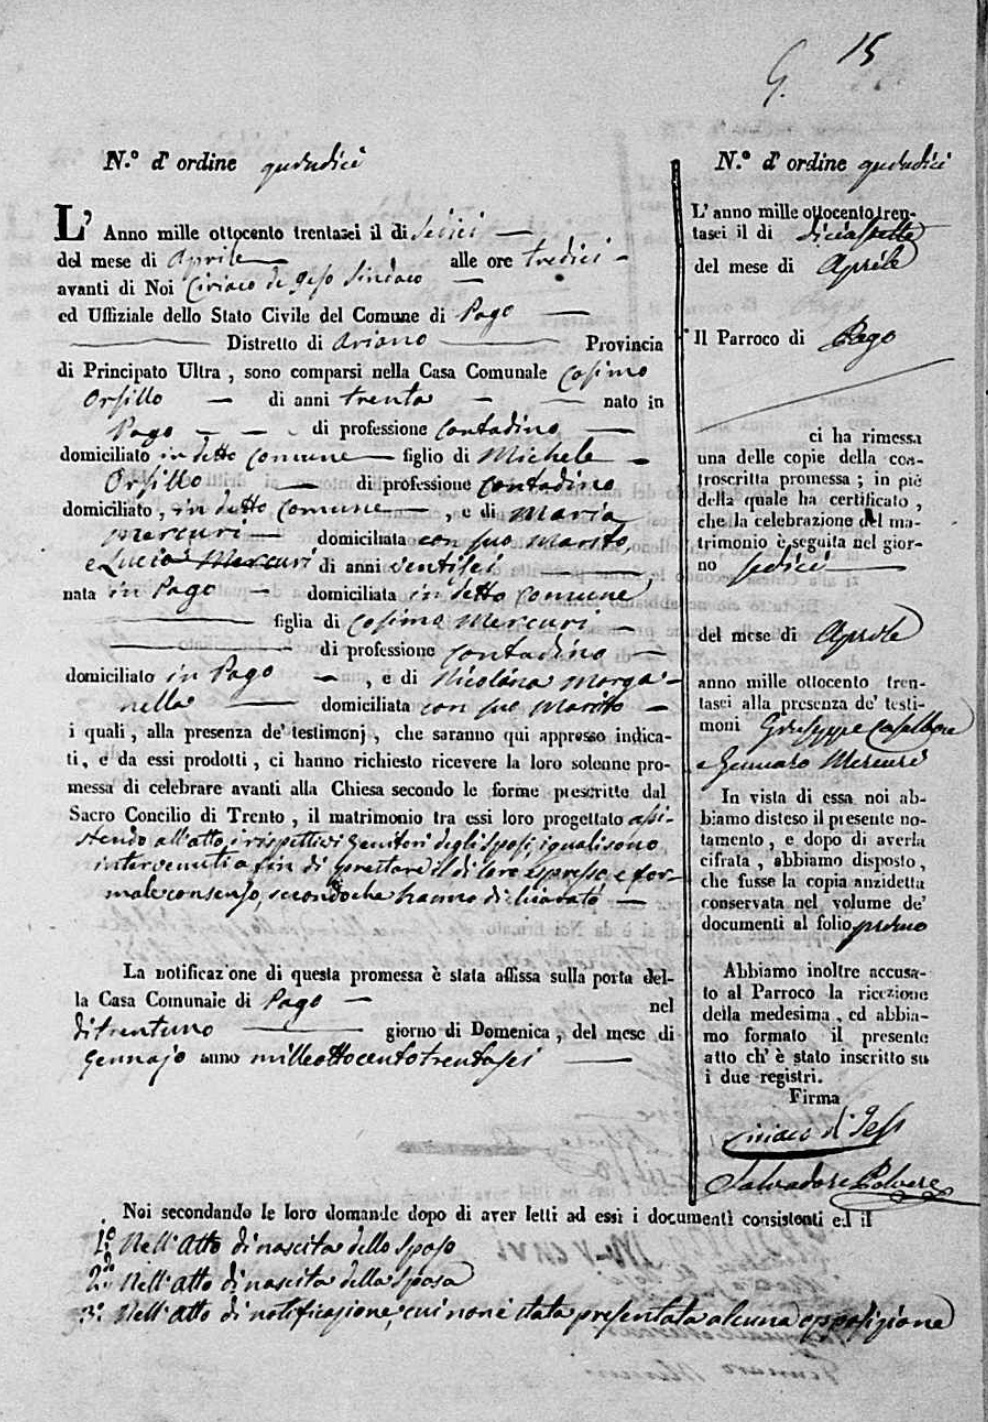 15
G.
N.º d' ordine quindici
L' Anno mille ottocento trentasei il di sedici
del mese di Aprile alle ore tredici
avanti di Noi Ciriaco de Geso Sindaco
ed Uffiziale dello Stato Civile del Comune di Pago
Distretto di Ariano Provincia
di Principato Ultra , sono comparsi nella Casa Comunale Cosimo
Orsillo di anni trenta nato in
Pago di professione contadino
domiciliato in detto comune figlio di Michele
Orsillo di professione contadino
domiciliato , in detto comune , e di Maria
Mercuri domiciliata con suo marito,
e Lucia Mercuri di anni ventisei ,
nata in Pago domiciliata in detto comune
figlia di Cosimo Mercuri
di professione contadino
domiciliato in Pago , e di Nicolina Morga-
nella domiciliata con suo marito
i quali , alla presenza de' testimonj , che saranno qui appresso indica-
ti , e da essi prodotti , ci hanno richiesto ricevere la loro solenne pro-
messa di celebrare avanti alla Chiesa secondo le forme prescritte dal
Sacro Concilio di Trento , il matrimonio tra essi loro progettato assi-
stendo all'atto i rispettivi Genitori degli sposi, i quali sono
intervenuti a fin di prestare il di loro espresso, e for-
male consenso, secondoche hanno dichiarato
La notificazione di questa promessa è stata affissa sulla porta del-
la Casa Comunale di Pago nel
di trentuno giorno di Domenica , del mese di
Gennajo anno milleottocentotrentasei
N.º d' ordine quindici
L' anno mille ottocento tren-
tasei il di diciassette
del mese di Aprile
Il Parroco di Pago
ci ha rimessa
una delle copie della con-
troscritta promessa ; in piè
della quale ha certificato ,
che la celebrazione del ma-
trimonio è seguita nel gior-
no sedici
del mese di Aprile
anno mille ottocento tren-
tasei alla presenza de' testi-
moni Giuseppe Casalbore
e Gennaro Mercuri
In vista di essa noi ab-
biamo disteso il presente no-
tamento , e dopo di averla
cifrata , abbiamo disposto ,
che fusse la copia anzidetta
conservata nel volume de'
documenti al folio primo
Abbiamo inoltre accusa-
to al Parroco la ricezione
della medesima , ed abbia-
mo formato il presente
atto ch' è stato inscritto su
i due registri.
Firma
Ciriaco d' Geso
Salvadore Polvere
Noi secondando le loro domande dopo di aver letti ad essi i documenti consistenti ed il
1º Nell'Atto di nascita dello Sposo
2do Nell'Atto di nascita della Sposa
3º Nell'Atto di notificazione, cui non è stata presentata alcuna opposizione